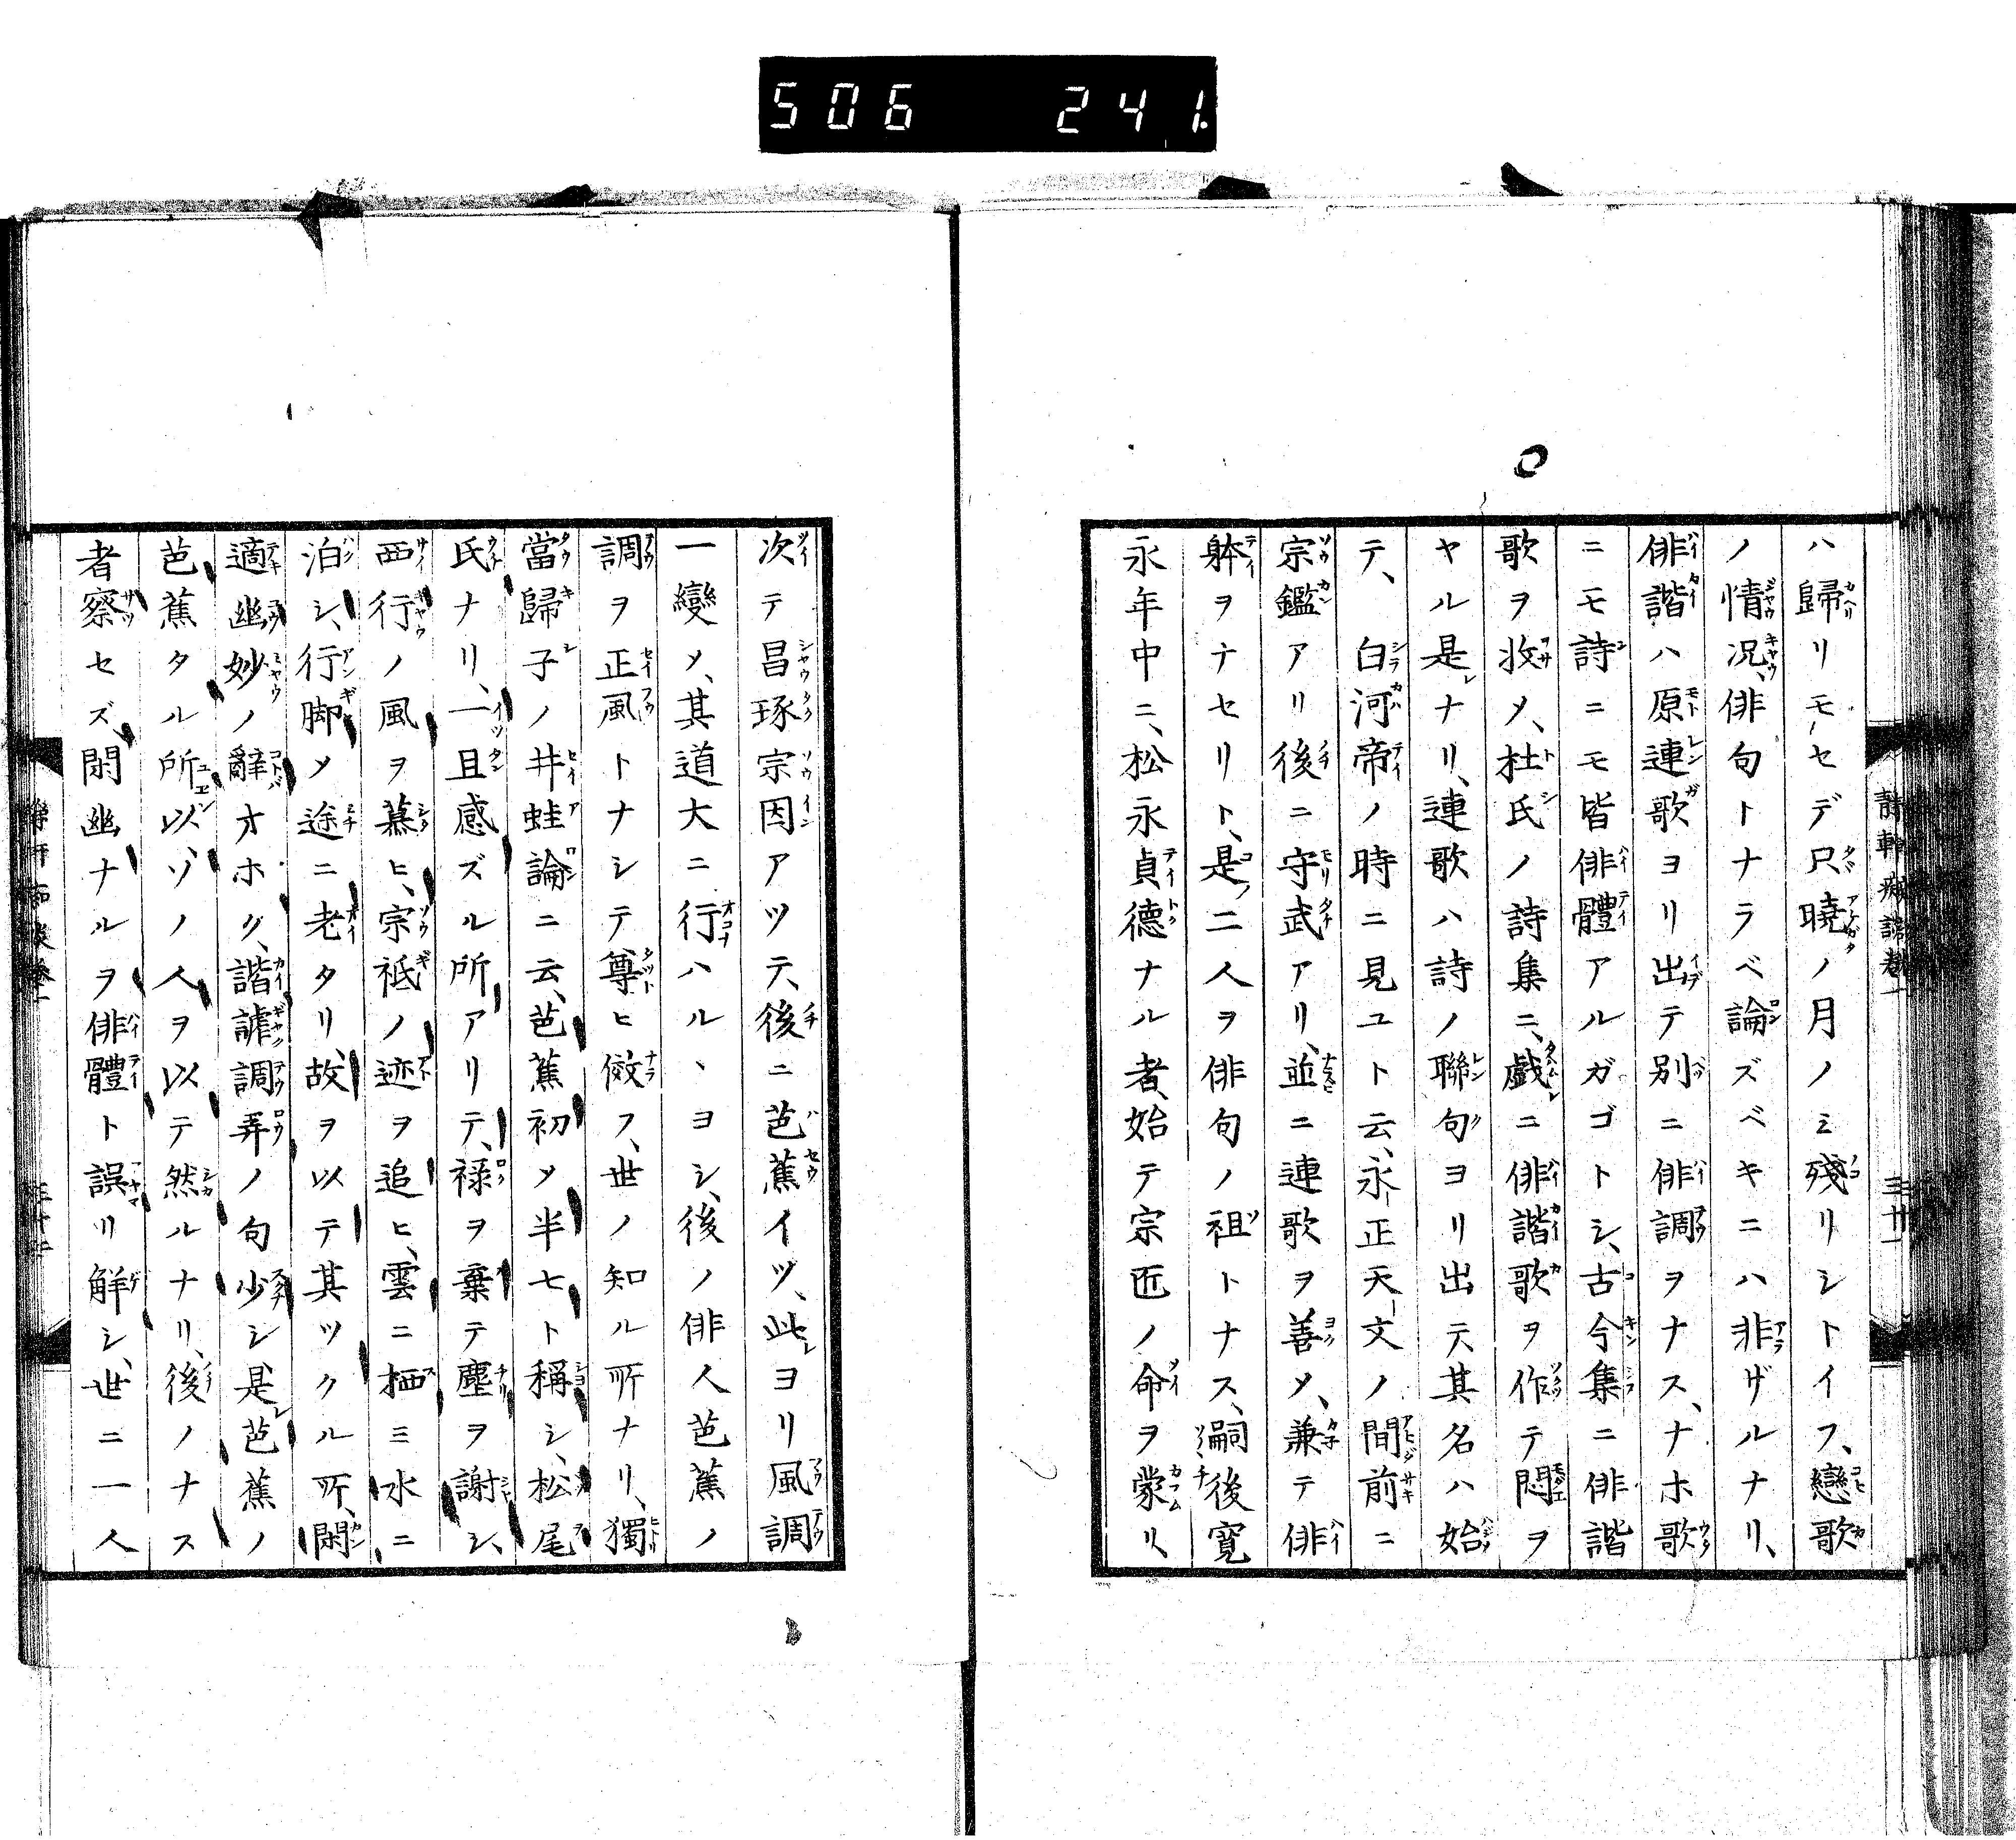 506 241.
ハ歸リモセデ只曉ノ月ノミ殘リシトイフ、戀歌
ノ情况、俳句トナラベ論ズベキニハ非ザルナリ、
俳諧ハ原連歌ヨリ出テ別ニ俳調ヲナス、ナホ歌
ニモ詩ニモ皆俳體アルガゴトシ、古今集ニ俳諧
歌ヲ收メ、杜氏ノ詩集ニ、戲ニ俳諧歌ヲ作テ悶ヲ
ヤル是ナリ、連歌ハ詩ノ聯句ヨリ出テ其名ハ始
テ、白河帝ノ時ニ見ユト云、永正天文ノ間前ニ
宗鑑アリ後ニ守武アリ、並ニ連歌ヲ善メ、兼テ俳
躰ヲナセリト、是二人ヲ俳句ノ祖トナス、嗣後寛
永年中ニ、松永貞德ナル者、始テ宗匠ノ命ヲ蒙リ、
次テ昌琢宗因アツテ、後ニ芭蕉イヅ、此ヨリ風調
一變メ、其道大ニ行ハルヽヨシ、後ノ俳人芭蕉ノ
調ヲ正風トナシテ尊ヒ傚フ、世ノ知ル所ナリ、獨
當歸子ノ井蛙論ニ云、芭蕉初メ半七ト稱シ、松尾
氏ナリ、一且感ズル所アリテ、祿ヲ棄テ塵ヲ謝シ、
西行ノ風ヲ慕ヒ、宗祗ノ迹ヲ追ヒ、雲ニ栖ミ水ニ
泊シ、行脚メ途ニ老タリ、故ヲ以テ其ツクル所、閑
適幽妙ノ辭オホク、諧謔調弄ノ句少シ、是芭蕉ノ
芭蕉タル所以、ソノ人ヲ以テ然ルナリ、後ノナス
者察セズ、閑幽ナルヲ俳體ト誤リ解シ、世ニ一人